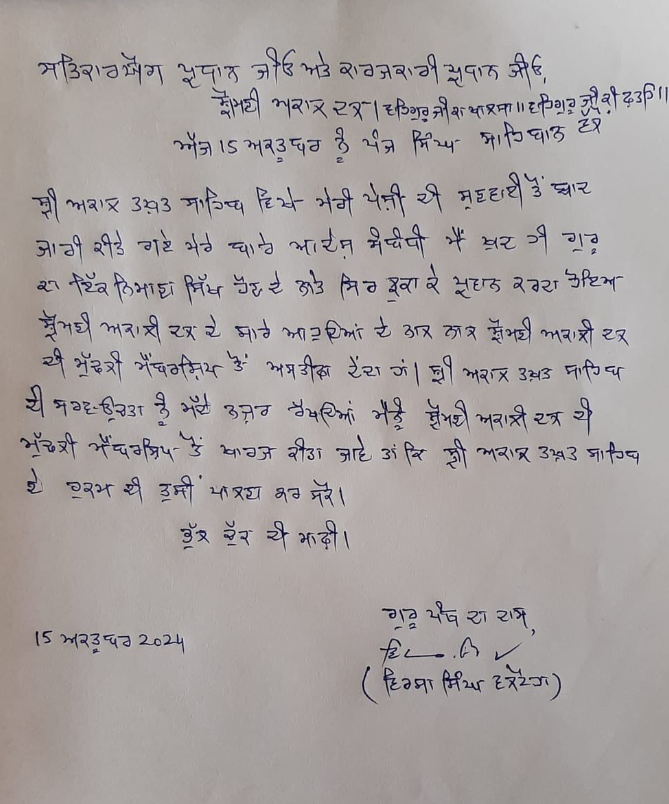 ਸਤਿਕਾਰਯੋਗ ਪ੍ਰਧਾਨ ਜੀਓ ਅਤੇ ਕਾਰਜਕਾਰੀ ਪ੍ਰਧਾਨ ਜੀਓ,
ਸ਼੍ਰੋਮਣੀ ਅਕਾਲੀ ਦਲ। ਵਾਹਿਗੁਰੂ ਜੀ ਕਾ ਖਾਲਸਾ॥ ਵਾਹਿਗੁਰੂ ਜੀ ਕੀ ਫਤਹਿ॥
ਅੱਜ 15 ਅਕਤੂਬਰ ਨੂੰ ਪੰਜ ਸਿੰਘ ਸਾਹਿਬਾਨ ਵੱਲੋਂ
ਸ਼੍ਰੀ ਅਕਾਲ ਤਖ਼ਤ ਸਾਹਿਬ ਵਿਖੇ ਮੇਰੀ ਪੇਸ਼ੀ ਦੀ ਸੁਣਵਾਈ ਤੋਂ ਬਾਦ
ਜਾਰੀ ਕੀਤੇ ਗਏ ਮੇਰੇ ਬਾਰੇ ਆਦੇਸ਼ ਸੰਬੰਧੀ ਮੈਂ ਖ਼ੁਦ ਹੀ ਗੁਰੂ
ਕਾ ਇੱਕ ਨਿਮਾਣਾ ਸਿੱਖ ਹੋਣ ਦੇ ਨਾਤੇ ਸਿਰ ਝੁਕਾ ਕੇ ਪ੍ਰਵਾਨ ਕਰਦਾ ਹੋਇਆ
ਸ਼੍ਰੋਮਣੀ ਅਕਾਲੀ ਦਲ ਦੇ ਸਾਰੇ ਆਹੁਦਿਆਂ ਦੇ ਨਾਲ ਨਾਲ ਸ਼੍ਰੋਮਣੀ ਅਕਾਲੀ ਦਲ
ਦੀ ਮੁੱਢਲੀ ਮੈਂਬਰਸ਼ਿਪ ਤੋਂ ਅਸਤੀਫ਼ਾ ਦੇਂਦਾ ਹਾਂ। ਸ਼੍ਰੀ ਅਕਾਲ ਤਖ਼ਤ ਸਾਹਿਬ
ਦੀ ਸਰਵ-ਉੱਚਤਾ ਨੂੰ ਮੱਦੇ ਨਜ਼ਰ ਰੱਖਦਿਆਂ ਮੈਨੂੰ ਸ਼੍ਰੋਮਣੀ ਅਕਾਲੀ ਦਲ ਦੀ
ਮੁੱਢਲੀ ਮੈਂਬਰਸ਼ਿਪ ਤੋਂ ਖਾਰਜ ਕੀਤਾ ਜਾਏ ਤਾਂ ਕਿ ਸ਼੍ਰੀ ਅਕਾਲ ਤਖ਼ਤ ਸਾਹਿਬ
ਦੇ ਹੁਕਮ ਦੀ ਤੁਸੀਂ ਪਾਲਣਾ ਕਰ ਸਕੋ।
ਭੁੱਲ ਚੁੱਕ ਦੀ ਮਾਫ਼ੀ।
ਗੁਰੂ ਪੰਥ ਦਾ ਦਾਸ,
15 ਅਕਤੂਬਰ 2024
(ਵਿਰਸਾ ਸਿੰਘ ਵਲਟੋਹਾ)